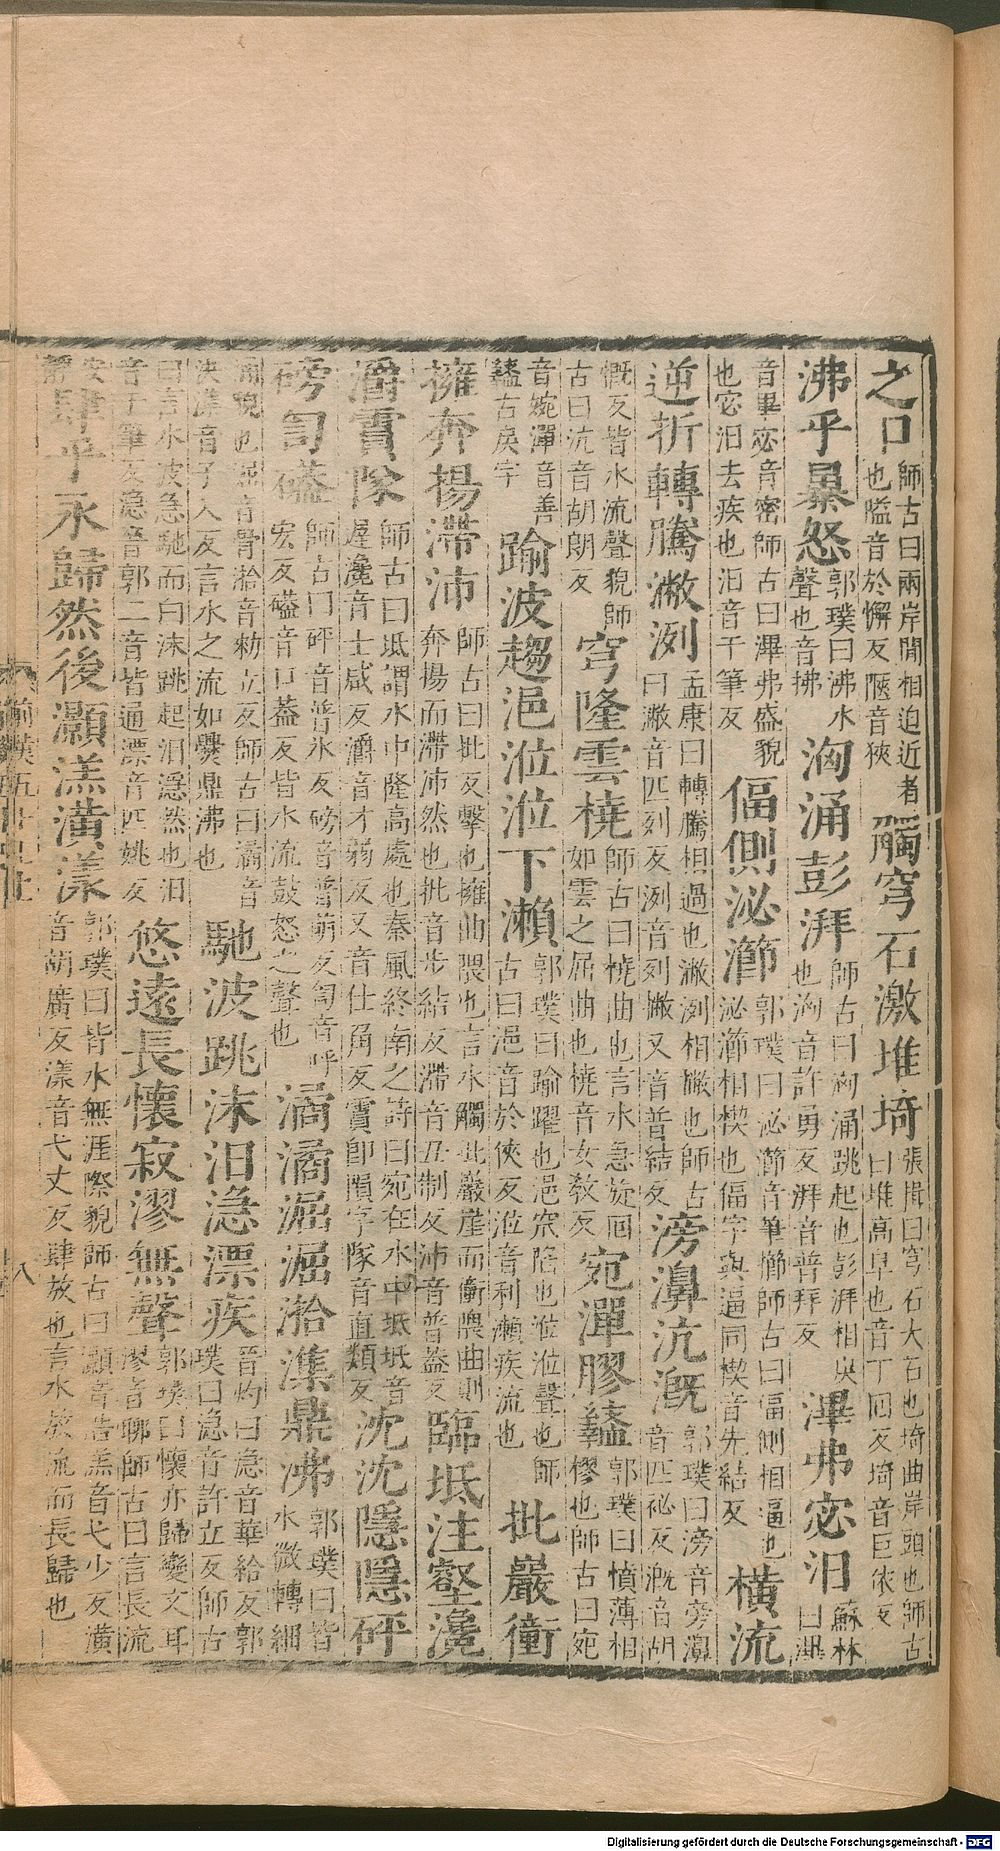 之口師古曰兩岸閒相迫近者也隘音於懈反陿音狹觸穹石激堆埼張揖曰穹石大石也埼曲岸頭也師古曰堆高阜也音丁回反埼音巨依反
沸乎暴怒郭璞曰沸水聲也音拂洶涌彭湃師古曰洶涌跳起也彭湃相戾也洶音許勇反湃音普拜反滭弗宓汨蘇林曰滭
音畢宓音密師古曰滭弗盛貌也宓汨去疾也汨音于筆反偪側泌瀄郭璞曰泌瀄音筆櫛師古曰偪側相逼也泌瀄相楔也偪字與逼同楔音先結反橫流
逆折轉騰潎洌孟康曰轉騰相過也潎洌相撇也師古曰潎音匹列反洌音列撇又音普結反滂濞沆溉郭璞曰滂音旁濞音匹祕反溉音胡
慨反皆水流聲貌師古曰沆音胡朗反穹隆雲橈師古曰橈曲也言水急旋回如雲之屈曲也橈音女教反宛潬膠盭郭璞曰憤薄相樛也師古曰宛
音婉潬音善盭古戾字踰波趨浥涖涖下瀨郭璞曰踰躍也浥窊陷也涖涖聲也師古曰浥音於俠反涖音利瀨疾流也批巖衝
擁奔揚滯沛師古曰批反擊也擁曲隈也言水觸此巖崖而衝隈曲則奔揚而滯沛然也批音步結反滯音丑制反沛音普蓋反臨坻注壑瀺
灂霣隊師古曰坻謂水中隆高處也秦風終南之詩曰宛在水中坻坻音瀺音士咸反灂音才弱反又音仕角反霣即隕字隊音直類反沈沈隱隱砰
磅訇磕師古曰砰音普冰反磅音普萌反訇音呼宏反磕音口蓋反皆水流鼓怒之聲也潏潏淈淈湁潗鼎沸郭璞曰皆水微轉細
涌貌也淈音骨湁音勑立反師古曰潏音決潗音子入反言水之流如爨鼎沸也馳波跳沫汨㴔漂疾晉灼曰㴔音華給反郭璞曰㴔音許立反師古
曰言水波急馳而白沫跳起汨㴔然也汨音于筆反㴔音郭二音皆通漂音匹姚反悠遠長懷寂漻無聲郭璞曰懷亦歸變文耳漻音聊師古曰言長流
安靜肆乎永歸然後灝溔潢漾郭璞曰皆水無涯際貌師古曰灝音浩溔音弋少反潢音胡廣反漾音弋丈反肆放也言水放流而長歸也
前漢五十七上
八
Digitalisierung gefördert durch die Deutsche Forschungsgemeinschaft - DFG